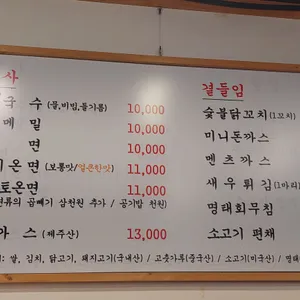 사
국 수 (물,비빔,들기름) 10,000
메 밀 10,000
면 10,000
온면 (보통맛/얼큰한맛) 11,000
토온면 11,000
면류의 곱빼기 삼천원 추가 / 공기밥 천원)
까 스 (제주산) 13,000
곁들임
숯불닭꼬치 (1꼬치)
미니돈까스
멘츠까스
새우튀김 (1마리)
명태회무침
소고기 편채
: 쌀, 김치, 닭고기, 돼지고기(국내산) / 고춧가루(중국산) / 소고기(미국산) / 명태